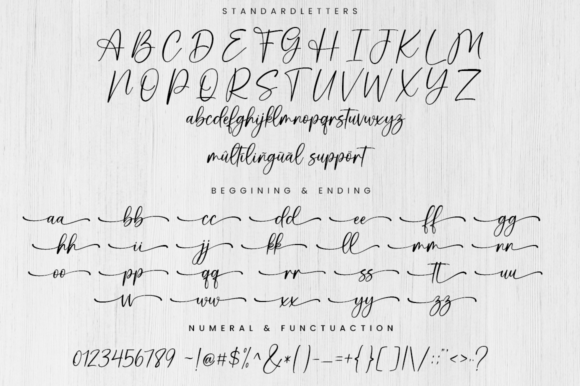 STANDARDLETTERS
ABCDEFGHIJKLM
NOPQRSTUVWXYZ
abcdefghijklmnopqrstuvwxyz
múltilingüãl support
BEGGINING & ENDING
aa bb cc dd ee ff gg
hh ii jj kk ll mm nn
oo pp qq rr ss tt uu
vv ww xx yy zz
NUMERAL & FUNCTUACTION
0123456789 ~!@#$%^&*()-–_=+{}[]|\/:;"<>,.?